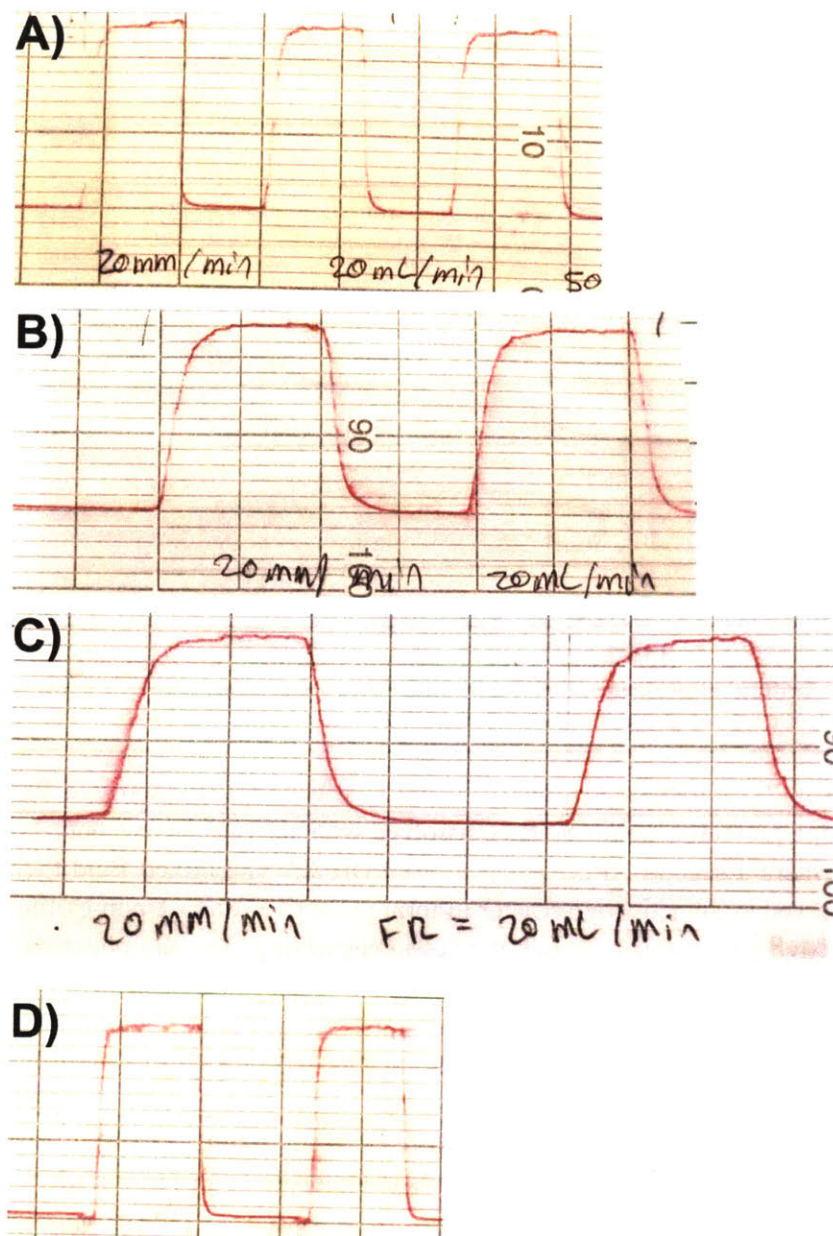 A)
10
20mm/min 20mL/min 50
B)
90
20mm/min 20mL/min
C)
90
100
20mm/min FR = 20mL/min
D)